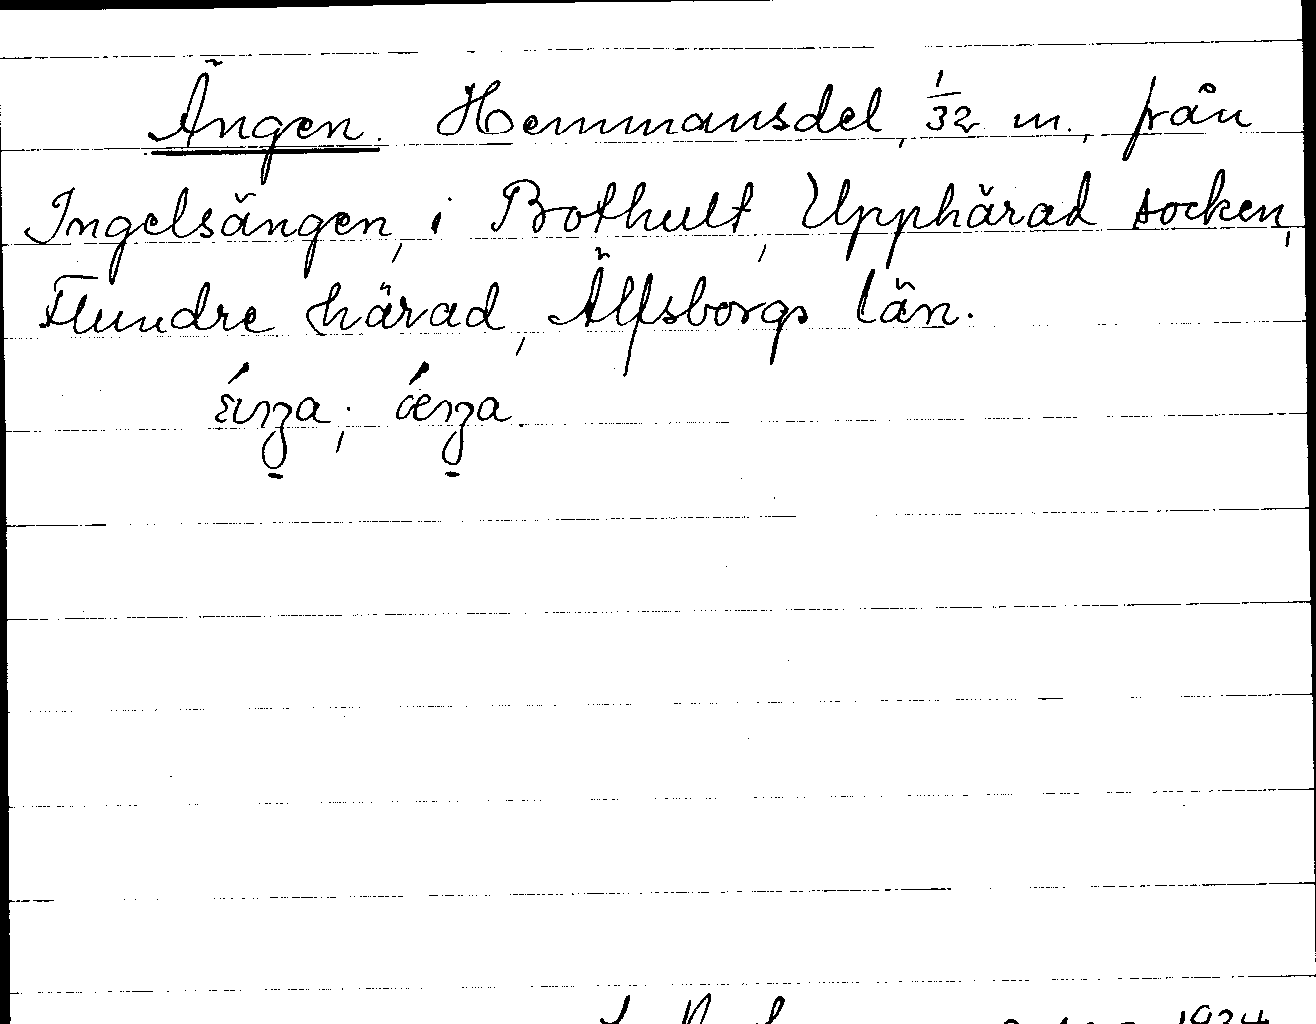 Ängen. Hemmansdel, 1/32 m., från
Ingelsängen, i Bothult, Upphärad socken,
Flundre härad, Älfsborgs län.
1934